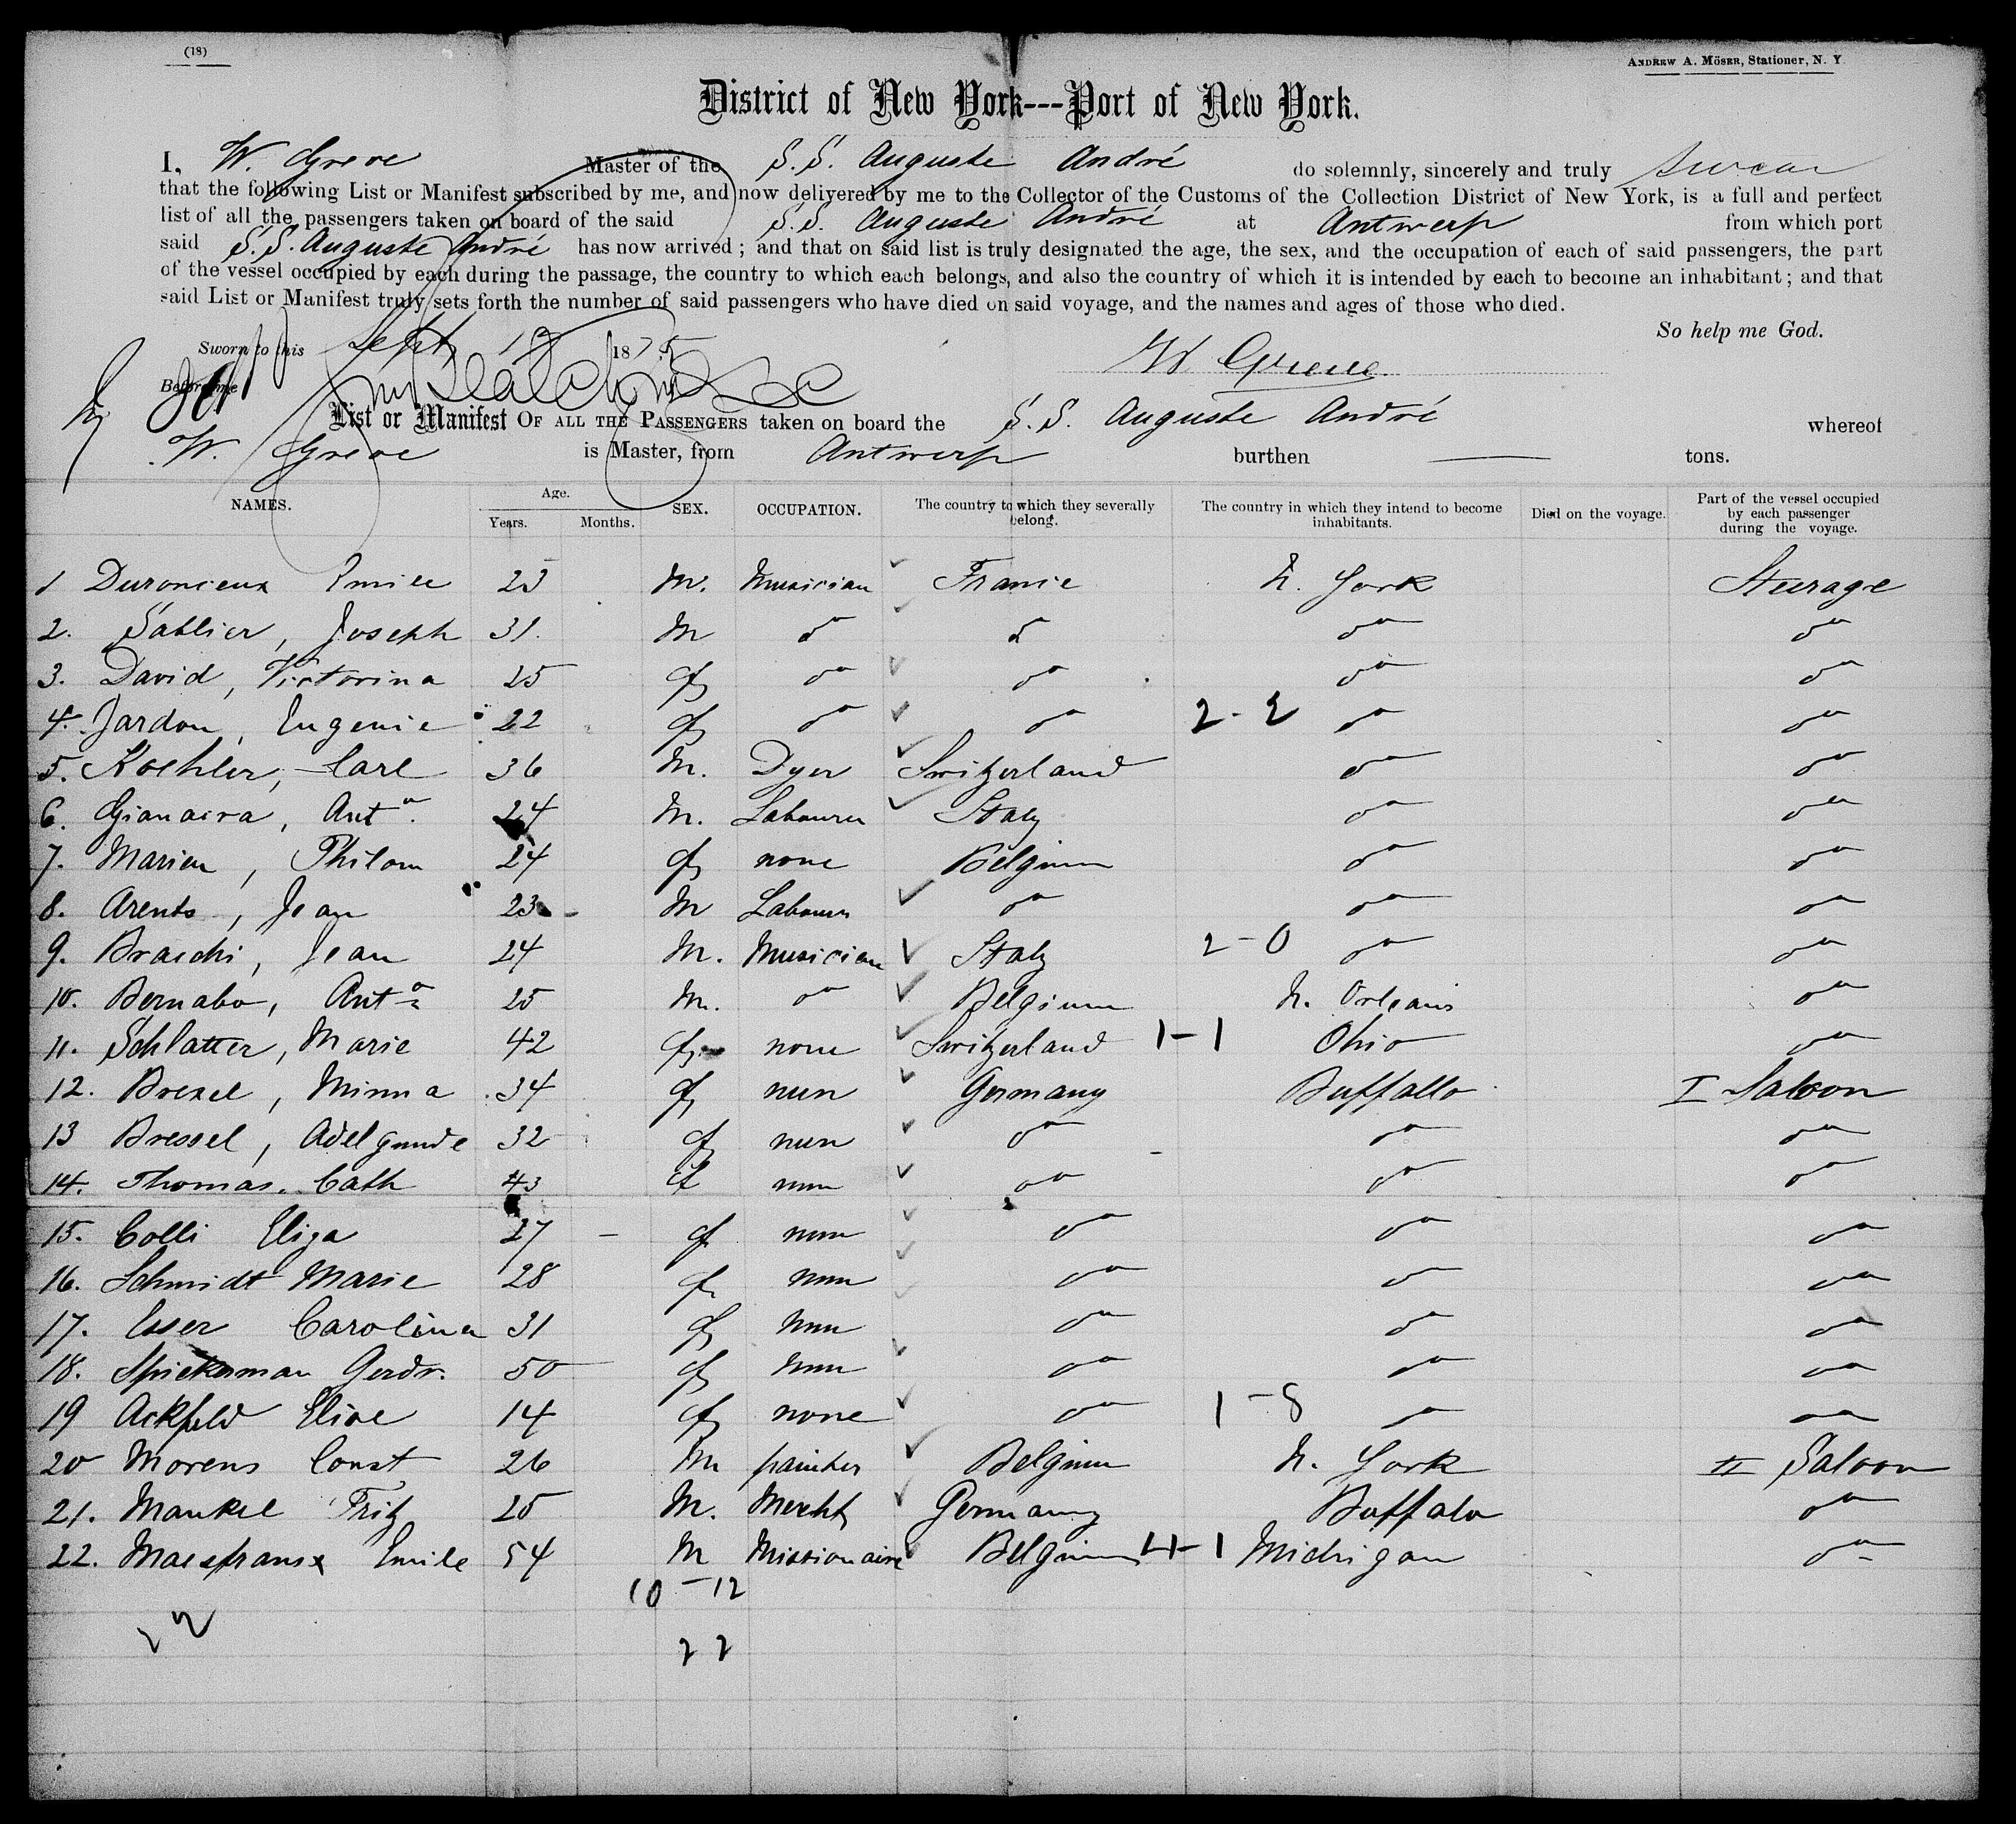 (18)
ANDREW A. MÖSER, Stationer, N. Y.
District of New York---Port of New York.
I, W. Greve Master of the S.S. Auguste André do solemnly, sincerely and truly swear
that the following List or Manifest subscribed by me, and now delivered by me to the Collector of the Customs of the Collection District of New York, is a full and perfect
list of all the passengers taken on board of the said S.S. Auguste André at Antwerp from which port
said S.S. Auguste André has now arrived; and that on said list is truly designated the age, the sex, and the occupation of each of said passengers, the part
of the vessel occupied by each during the passage, the country to which each belongs, and also the country of which it is intended by each to become an inhabitant; and that
said List or Manifest truly sets forth the number of said passengers who have died on said voyage, and the names and ages of those who died.
So help me God.
Sworn to this Sept 187
W Greve
Before me
List or Manifest OF ALL THE PASSENGERS taken on board the S.S. Auguste André whereof
W. Greve is Master, from Antwerp burthen — tons.
NAMES. Age. Years. Months. SEX. OCCUPATION. The country to which they severally belong. The country in which they intend to become inhabitants. Died on the voyage. Part of the vessel occupied by each passenger during the voyage.
1 Duroncieux Emile 23 M. Musician France N. York Steerage
2. Sablier, Joseph 31. M do do do do
3. David, Victorina 25 f do do do do
4. Jardon, Eugenie 22 f do do 2-2 do do
5. Koehler, Carl 36 M. Dyer Switzerland do do
6. Gianaira, Anto. 24 M. Labourer Italy do do
7. Marien, Philom 24 f none Belgium do do
8. Arents, Jean 23 M Labourer do do do
9. Braechi, Jean 24 M. Musician Italy 2-0 do do
10. Bernabo, Anto 25 M. do Belgium N. Orleans do
11. Schlatter, Marie 42 f. none Switzerland 1-1 Ohio do
12. Brexel, Minna 34 f nun Germany Buffallo I Saloon
13 Bressel, Adelgunde 32 f nun do do do
14. Thomas, Cath 43 f nun do do do
15. Colli Eliza 27 — f nun do do do
16. Schmidt Marie 28 f nun do do do
17. Esser Carolina 31 f nun do do do
18. Spiekerman Gerdr. 50 f nun do do do
19 Ackfeld Elise 14 f none do 1-8 do do
20 Morens Const 26 M painter Belgium N. York II Saloon
21. Mankel Fritz 25 M. Mercht Germany Buffalo do
22. Emile 54 M Missionaire Belgium 4-1 Michigan do
10-12
22
22